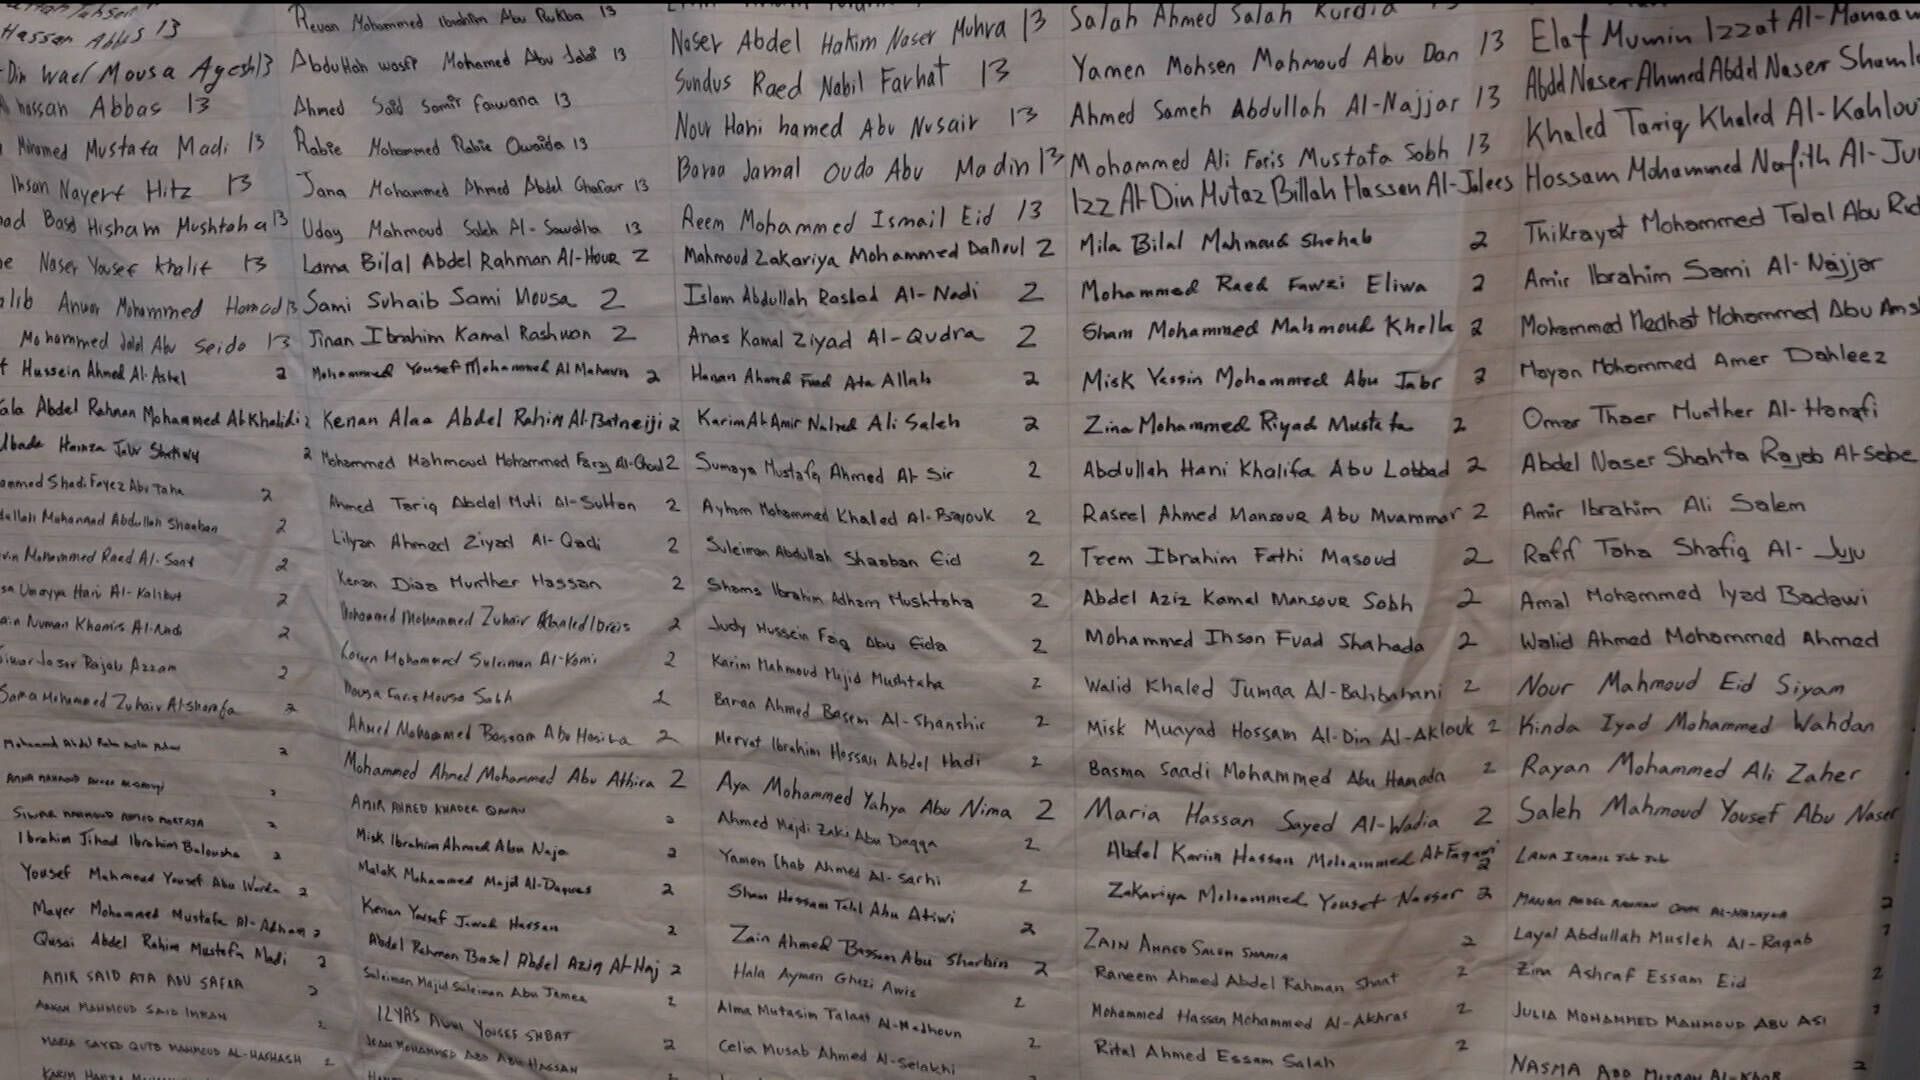 Hassan Abbas 13
Din Wael Mousa Ayesh 13
hassan Abbas 13
Mohamed Mustafa Madi 13
Ihsan Nayef Hitz 13
Hisham Mushtaha 13
Naser Yousef Khalif 13
Anwar Mohammed Hamad 13
Mohammed Jalal Abu Seido 13
Hussein Ahmed Al-Astal 2
Abdel Rahman Mohammed Al-Khalidi 2
Hamza Jabr 2
Shadi Fayez Abu Taha 2
Mohammed Abdullah Shaaban 2
Mohammed Raed Al-Sant 2
Umayya Hani Al-Kalibut 2
Numan Khamis Al-Nadi 2
Jaser Rajab Azzam 2
Sama Mohammed Zuhair Al-Sharafa 2
2
2
SIWAR MAHMOUD AHMED MORTAJA 2
Ibrahim Jihad Ibrahim Balousha 2
Yousef Mahmoud Yousef Abu Warda 2
Mayer Mohammed Mustafa Al-Adham 2
Qusai Abdel Rahim Mustafa Madi 2
AMIR SAID ATA ABU SAFAR 2
MAHMOUD SAID IMRAN 2
MARIA SAYED QUTB MAHMOUD AL-HASHASH 2
KARIM HAMZA
Revan Mohammed Ibrahim Abu Rukba 13
Abdullah wasfi Mohamed Abu Jabal 13
Ahmed Said Samir Fawana 13
Rabie Mohammed Rabie Owaida 13
Jana Mohammed Ahmed Abdel Ghafour 13
Uday Mahmoud Saleh Al-Sawalha 13
Lama Bilal Abdel Rahman Al-Hour 2
Sami Suhaib Sami Mousa 2
Jinan Ibrahim Kamal Rashwan 2
Mohammed Yousef Mohammed Al 2
Kenan Alaa Abdel Rahim Al-Batneiji 2
Mohammed Mahmoud Mohammed Faraj Al-Ghoul 2
Ahmed Tariq Abdel Muti Al-Sultan 2
Lilyan Ahmed Ziyad Al-Qadi 2
Kenan Diaa Munther Hassan 2
Mohammed Mohammed Zuhair Khaled Idreis 2
Mohammed Suleiman Al-Komi 2
Mousa Faris Mousa Sabh 2
Ahmed Mohammed Bassam Abu 2
Mohammed Ahmed Mohammed Abu Athira 2
AMIR AHMED KHADER 2
Misk Ibrahim Ahmed Abu Naja 2
Malak Mohammed Majd Al-Daqqes 2
Kenan Yousef Jawad Hassan 2
Abdel Rahman Basel Abdel Aziz Al-Haj 2
Suleiman Majid Suleiman Abu Jamea 2
ILYAS YOUSEF SHBAT 2
MOHAMMED ABD ABU HASSAN 2
Naser Abdel Hakim Naser Muhra 13
Sundus Raed Nabil Farhat 13
Nour Hani hamed Abu Nusair 13
Baraa Jamal Ouda Abu Madin 13
Reem Mohammed Ismail Eid 13
Mahmoud Zakariya Mohammed Dalloul 2
Islam Abdullah Rashad Al-Nadi 2
Anas Kamal Ziyad Al-Qudra 2
Hanan Ahmed Fuad Ata Allah 2
Karim Al-Amir Nahed Ali Saleh 2
Sumaya Mustafa Ahmed Al-Sir 2
Ayham Mohammed Khaled Al-Bayouk 2
Suleiman Abdullah Shaaban Eid 2
Shams Ibrahim Adham Mushtaha 2
Judy Hussein Faiq Abu Eida 2
Karim Mahmoud Majid Mushtaha 2
Baraa Ahmed Basem Al-Shanshir 2
Mervat Ibrahim Hassan Abdel Hadi 2
Aya Mohammed Yahya Abu Nima 2
Ahmed Majdi Zaki Abu Daqqa 2
Yamen Ehab Ahmed Al-Sarhi 2
Sham Hossam Talal Abu Atiwi 2
Zain Ahmed Bassam Abu Sharbin 2
Hala Ayman Ghazi Awis 2
Alma Mutasim Talaat Al-Madhoun 2
Celia Musab Ahmed Al-Selakhi
Salah Ahmed Salah Kurdia 13
Yamen Mohsen Mahmoud Abu Dan 13
Ahmed Sameh Abdullah Al-Najjar 13
Mohammed Ali Faris Mustafa Sobh 13
Izz Al-Din Mutaz Billah Hassan Al-Jalees
Mila Bilal Mahmoud Shehab 2
Mohammed Raed Fawzi Eliwa 2
Sham Mohammed Mahmoud Khella 2
Misk Yassin Mohammed Abu Jabr 2
Zina Mohammed Riyad Mustafa 2
Abdullah Hani Khalifa Abu Labbad 2
Raseel Ahmed Mansour Abu Muammar 2
Teem Ibrahim Fathi Masoud 2
Abdel Aziz Kamal Mansour Sobh 2
Mohammed Ihsan Fuad Shahada 2
Walid Khaled Jumaa Al-Bahbahani 2
Misk Muayad Hossam Al-Din Al-Aklouk 2
Basma Saadi Mohammed Abu Hamada 2
Maria Hassan Sayed Al-Wadia 2
Abdel Karim Hassan Mohammed 2
Zakariya Mohammed Yousef Nassar 2
ZAIN AHMED SALEM 2
Raneem Ahmed Abdel Rahman Shaat 2
Mohammed Hassan Mohammed Al-Akhras 2
Rital Ahmed Essam Salah 2
Elaf Mumin Izzat Al-Manaa
Abdel Naser Ahmed Abdel Naser Shaml
Khaled Tariq Khaled Al-Kahlou
Hossam Mohammed Nafith Al-Ju
Thikrayat Mohammed Talal Abu Rid
Amir Ibrahim Sami Al-Najjar
Mohammed Medhat Mohammed Abu Ams
Mayan Mohammed Amer Dahleez
Omar Thaer Munther Al-Hanafi
Abdel Naser Shahta Rajab Al-Sebe
Amir Ibrahim Ali Salem
Rafif Taha Shafiq Al-Juju
Amal Mohammed Iyad Badawi
Walid Ahmed Mohammed Ahmed
Nour Mahmoud Eid Siyam
Kinda Iyad Mohammed Wahdan
Rayan Mohammed Ali Zaher
Saleh Mahmoud Yousef Abu Naser
LANA ISMAIL
ABDEL RAHMAN OMAR 2
Layal Abdullah Musleh Al-Raqab
Zina Ashraf Essam Eid 2
JULIA MOHAMMED MAHMOUD ABU ASI
NASMA ABD 2